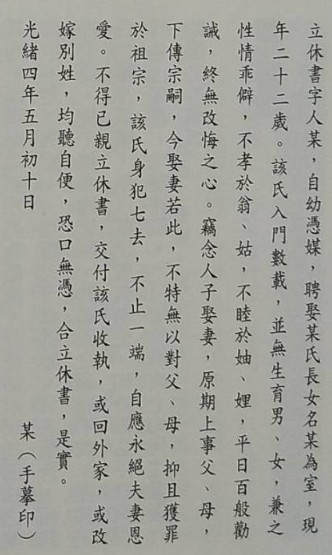 立休書字人某，自幼憑媒，聘娶某氏長女名某為室，現
年二十二歲。該氏入門數載，並無生育男、女，兼之
性情乖僻，不孝於翁、姑，不睦於妯、娌，平日百般勸
誡，終無改悔之心。竊念人子娶妻，原期上事父、母，
下傳宗嗣，今娶妻若此，不特無以對父、母，抑且獲罪
於祖宗，該氏身犯七去，不止一端，自應永絕夫妻恩
愛。不得已親立休書，交付該氏收執，或回外家，或改
嫁別姓，均聽自便，恐口無憑，合立休書，是實。
光緒四年五月初十日　　某（手摹印）